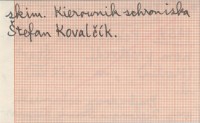 skim. Kierownik schroniska
Štefan Kovalčík.